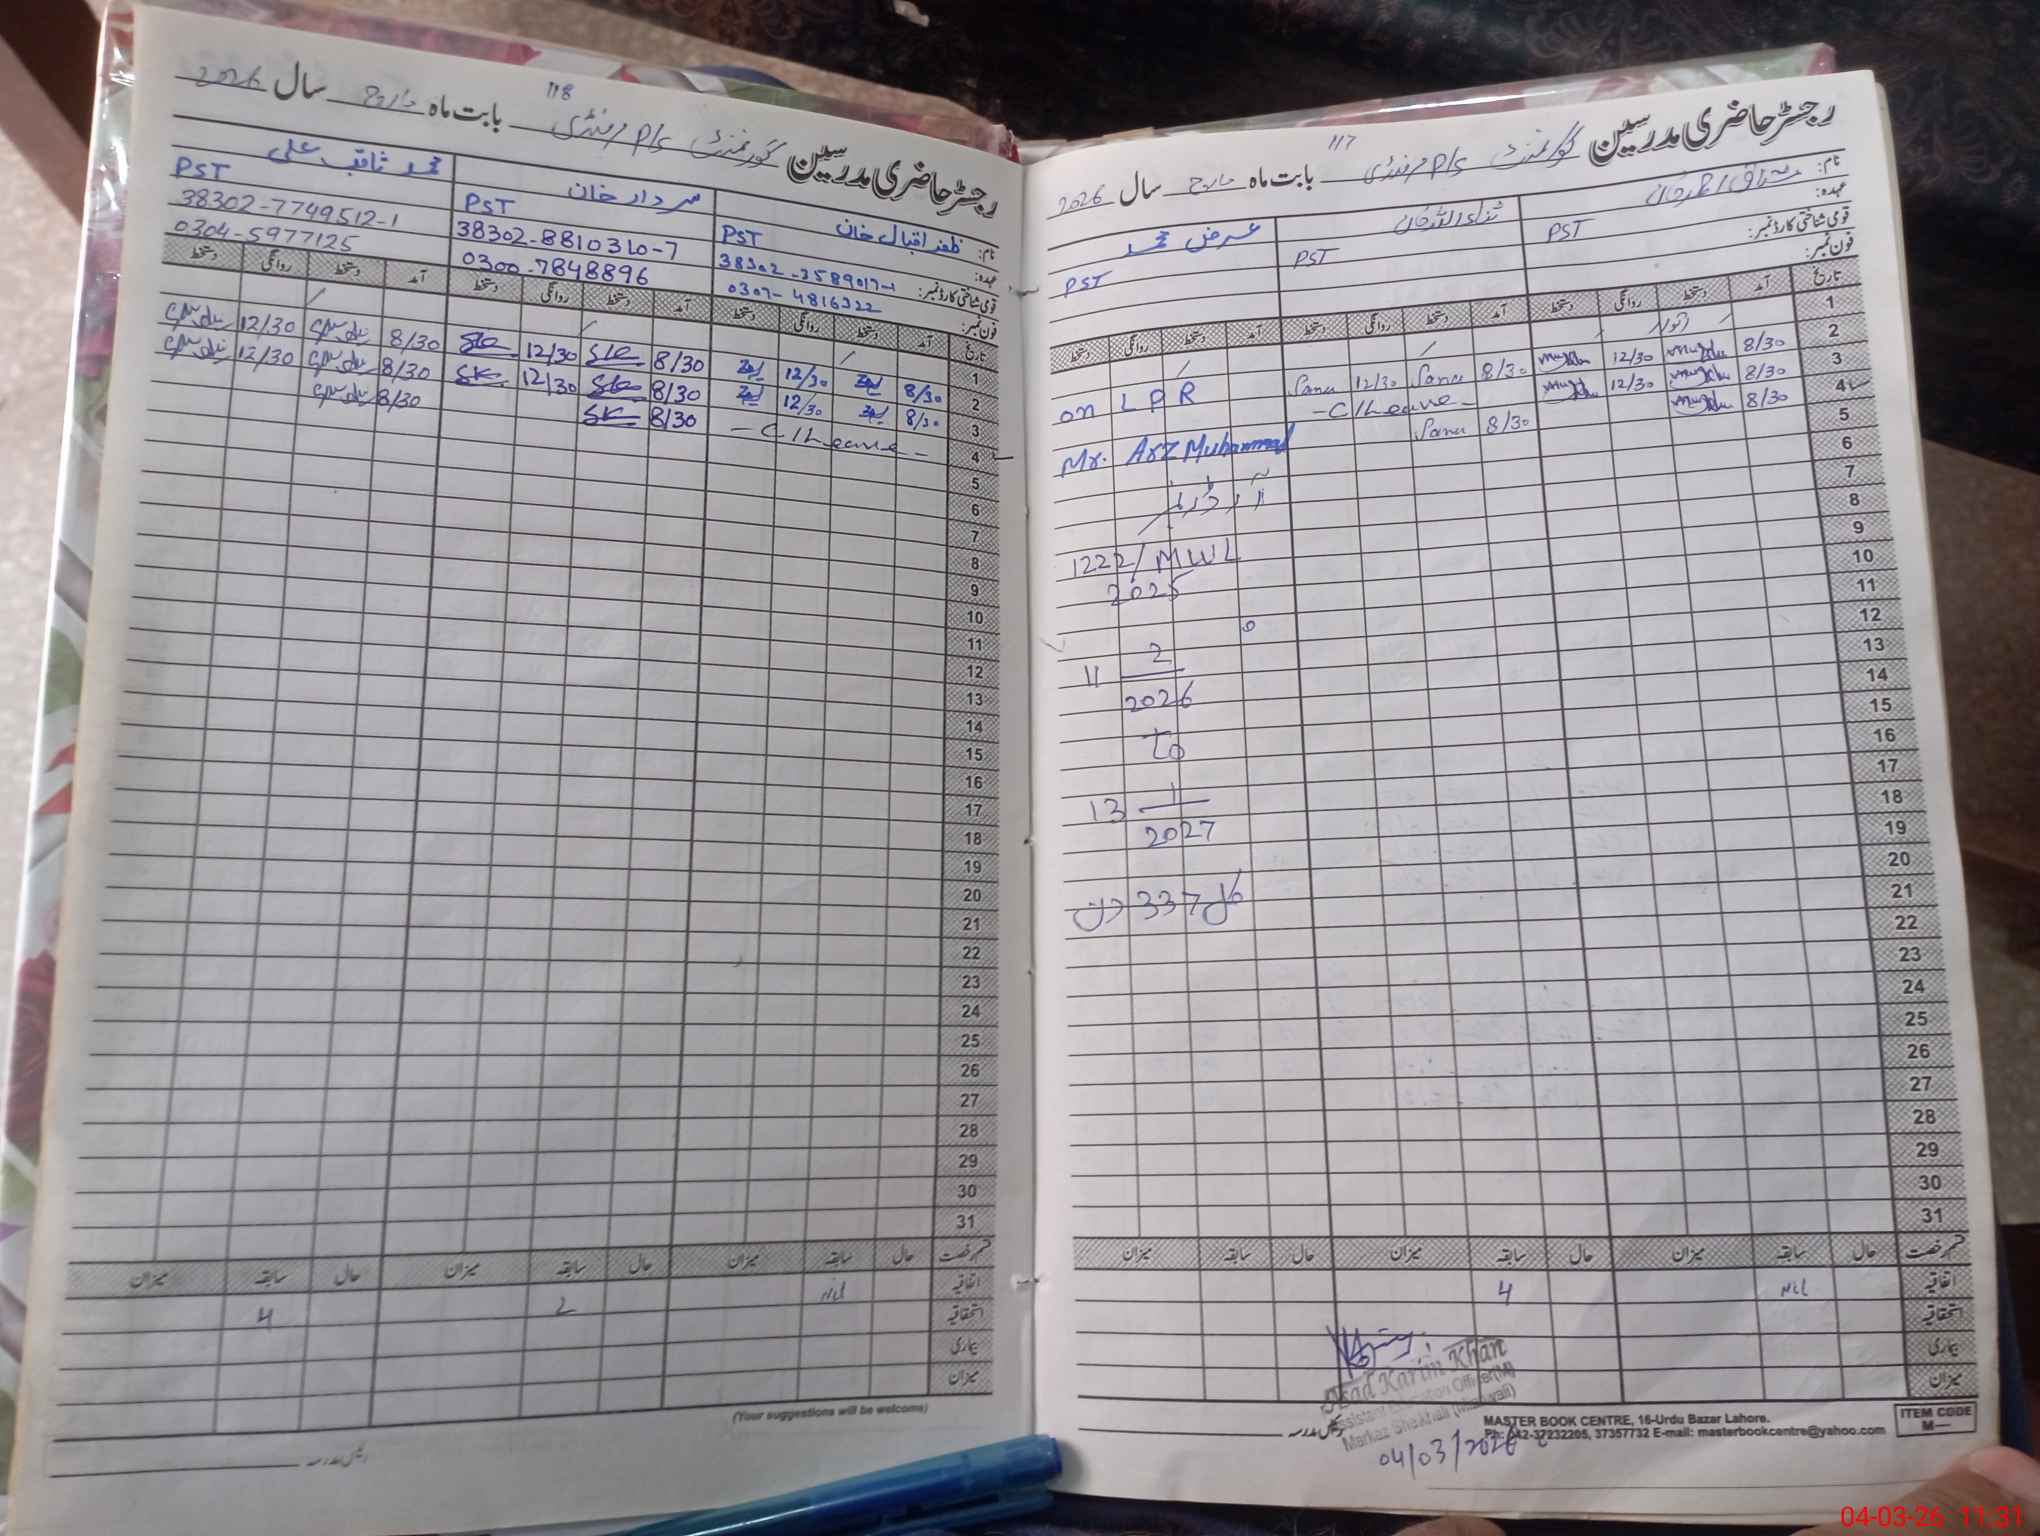 118
رجسٹر حاضری مدرسین گورنمنٹ P/S مرمنڈی بابت ماہ مارچ سال 2026
نام: ظفر اقبال خان سردار خان محمد ثاقب علی
عہدہ: PST PST PST
قومی شناختی کارڈ نمبر: 38302-8810310-7 38302-7749512-1
فون نمبر: 0307-4816322 0300-7848896 0304-5977125
تاریخ آمد دستخط روانگی دستخط آمد دستخط روانگی دستخط آمد دستخط روانگی دستخط
1
2 8/30 12/30 8/30 12/30 8/30 12/30
3 8/30 12/30 8/30 12/30 8/30 12/30
4 - C/Leave - 8/30 SK 8/30
5
6
7
8
9
10
11
12
13
14
15
16
17
18
19
20
21
22
23
24
25
26
27
28
29
30
31
قسم رخصت حال سابقہ میزان حال سابقہ میزان حال سابقہ میزان
اتفاقیہ Nil 2 4
استحقاقیہ
بیماری
میزان
(Your suggestions will be welcome)
رئیس مدرسہ
117
رجسٹر حاضری مدرسین گورنمنٹ P/S مرمنڈی بابت ماہ مارچ سال 2026
نام: مشتاق احمد خان ثناء اللہ خان عرض محمد
عہدہ: PST PST PST
قومی شناختی کارڈ نمبر:
فون نمبر:
تاریخ آمد دستخط روانگی دستخط آمد دستخط روانگی دستخط آمد دستخط روانگی دستخط
1 اتوار
2 8/30 12/30 8/30 Sana 12/30 Sana
3 8/30 12/30 - C/Leave -
4 8/30 8/30 Sana
5
6
7
8
9
10
11
12
13
14
15
16
17
18
19
20
21
22
23
24
25
26
27
28
29
30
31
on LPR
Mr. Arz Muhammad
آرڈر نمبر
1222/MWL
2025
11 2
2026
To
13 1
2027
کل 337 دن
قسم رخصت حال سابقہ میزان حال سابقہ میزان حال سابقہ میزان
اتفاقیہ Nil 4
استحقاقیہ
بیماری
میزان
Asad Karim Khan
Assistant Education Officer(M)
Markaz (Mianwali)
04/03/2026
رئیس مدرسہ
MASTER BOOK CENTRE, 16-Urdu Bazar Lahore.
Ph: 042-37232205, 37357732 E-mail: masterbookcentre@yahoo.com
ITEM CODE
M—
04-03-26 11:31